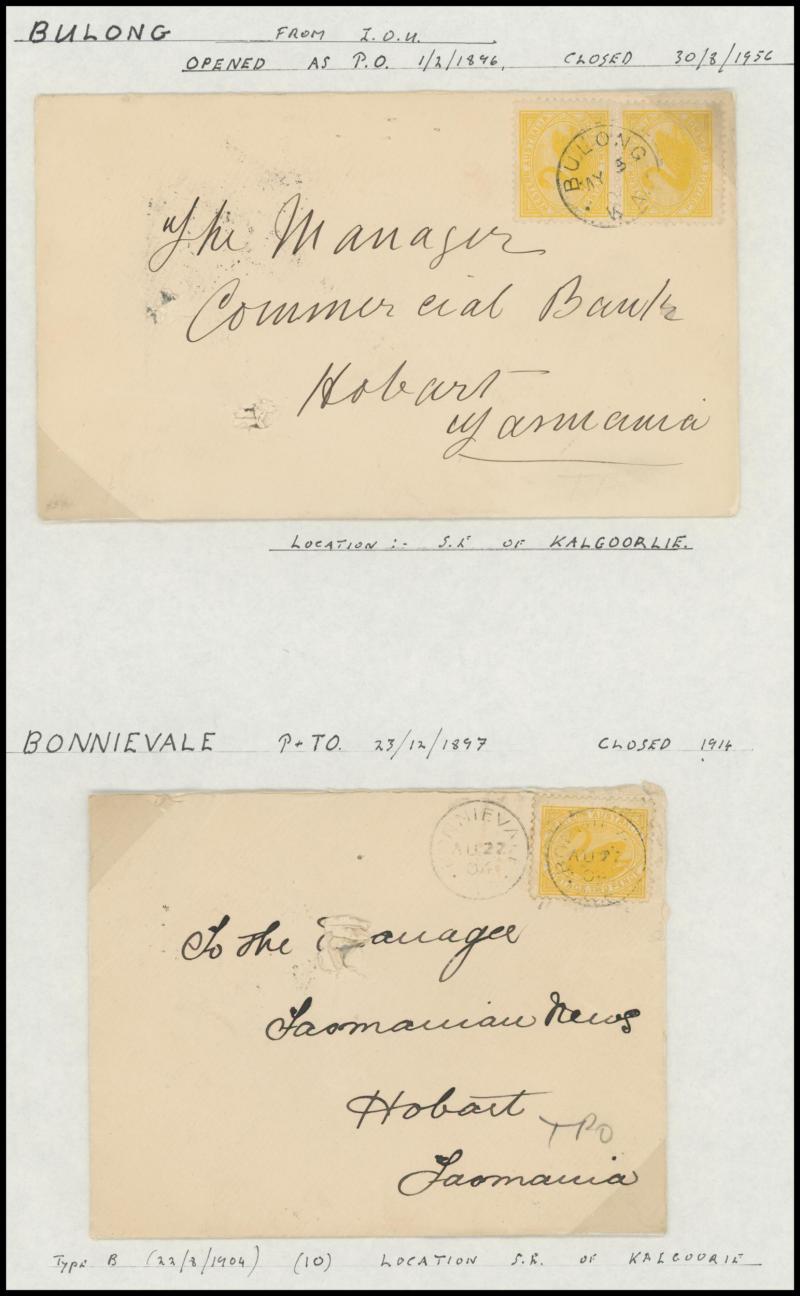 BULONG FROM I.O.U.
OPENED AS P.O. 1/2/1896. CLOSED 30/8/1956
WESTERN AUSTRALIA
BULONG
MY 5
W.A
The Manager
Commercial Bank
Hobart
Tasmania
LOCATION :- S.E OF KALGOORLIE.
BONNIEVALE P+TO. 23/12/1897 CLOSED 1914
BONNIEVALE
AU 22
04
AU 22
04
To the Manager
Tasmanian News
Hobart
TPO
Tasmania
TYPE B (22/8/1904) (10) LOCATION S.E. OF KALGOORIE